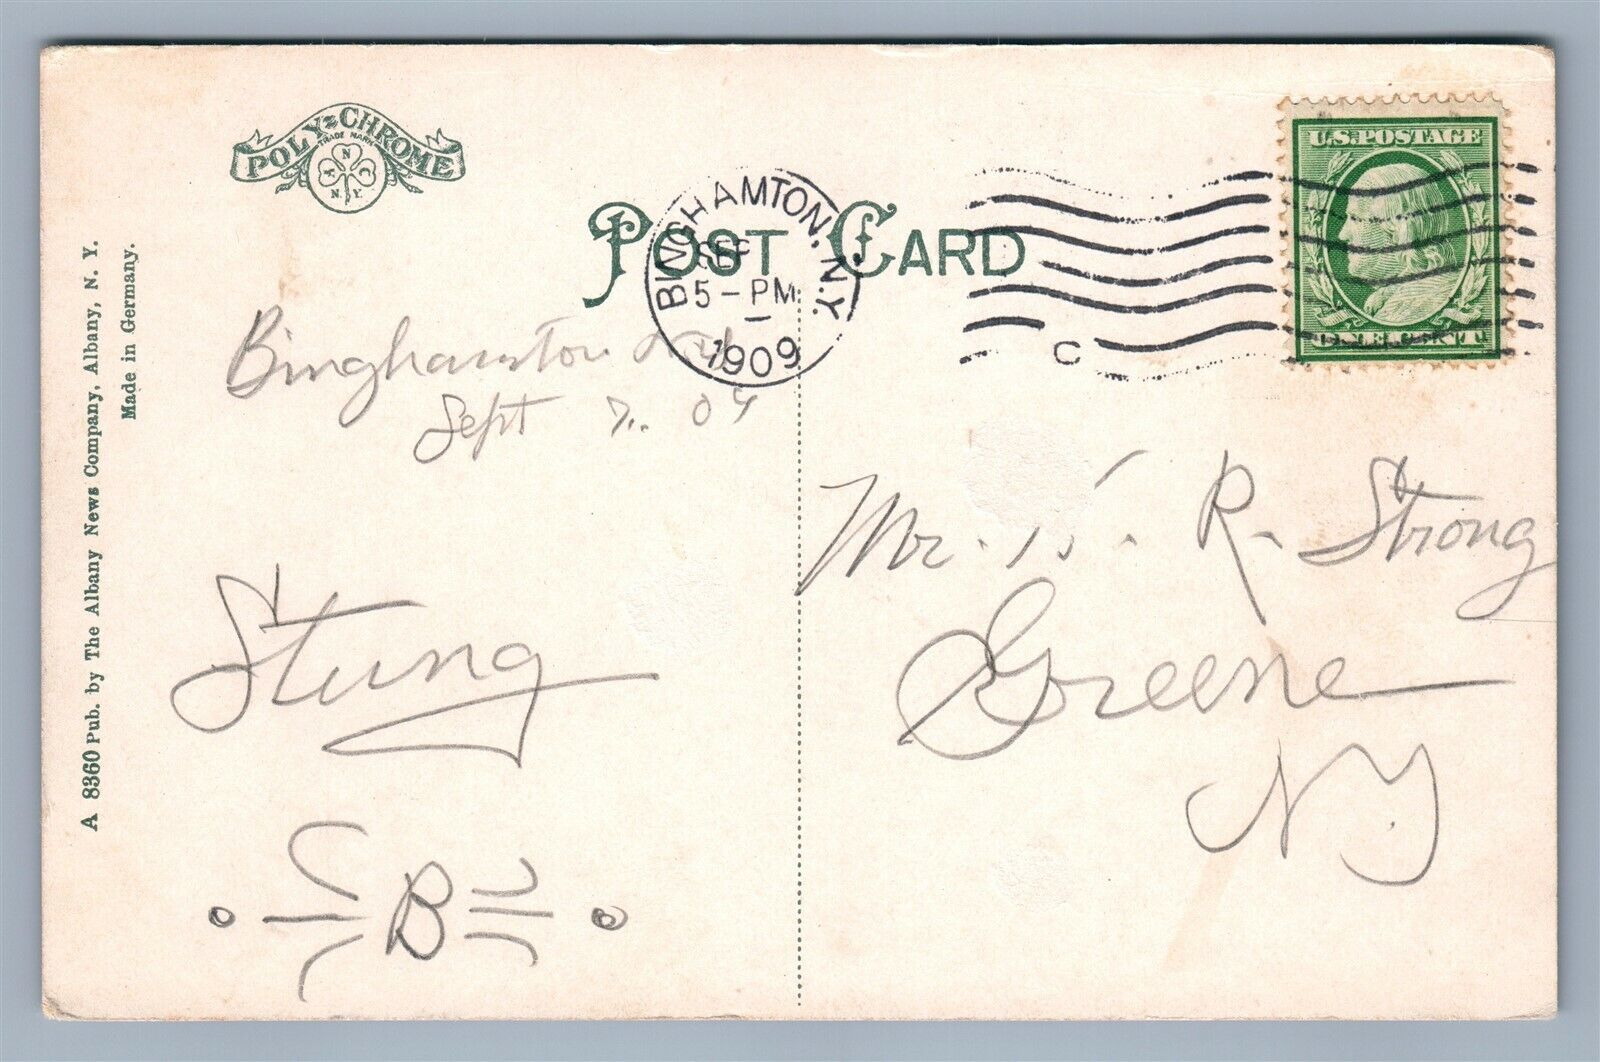 POLY-CHROME
TRADE MARK
A N C
N. Y.
POST CARD
BINGHAMTON, N.Y.
SEP
5 - PM
1909
C
U.S. POSTAGE
ONE CENT
A 8360 Pub. by The Albany News Company, Albany, N. Y.
Made in Germany.
Binghamton NY
Sept 7. 09
Stung
B
Mr. R. Strong
Greene
NY